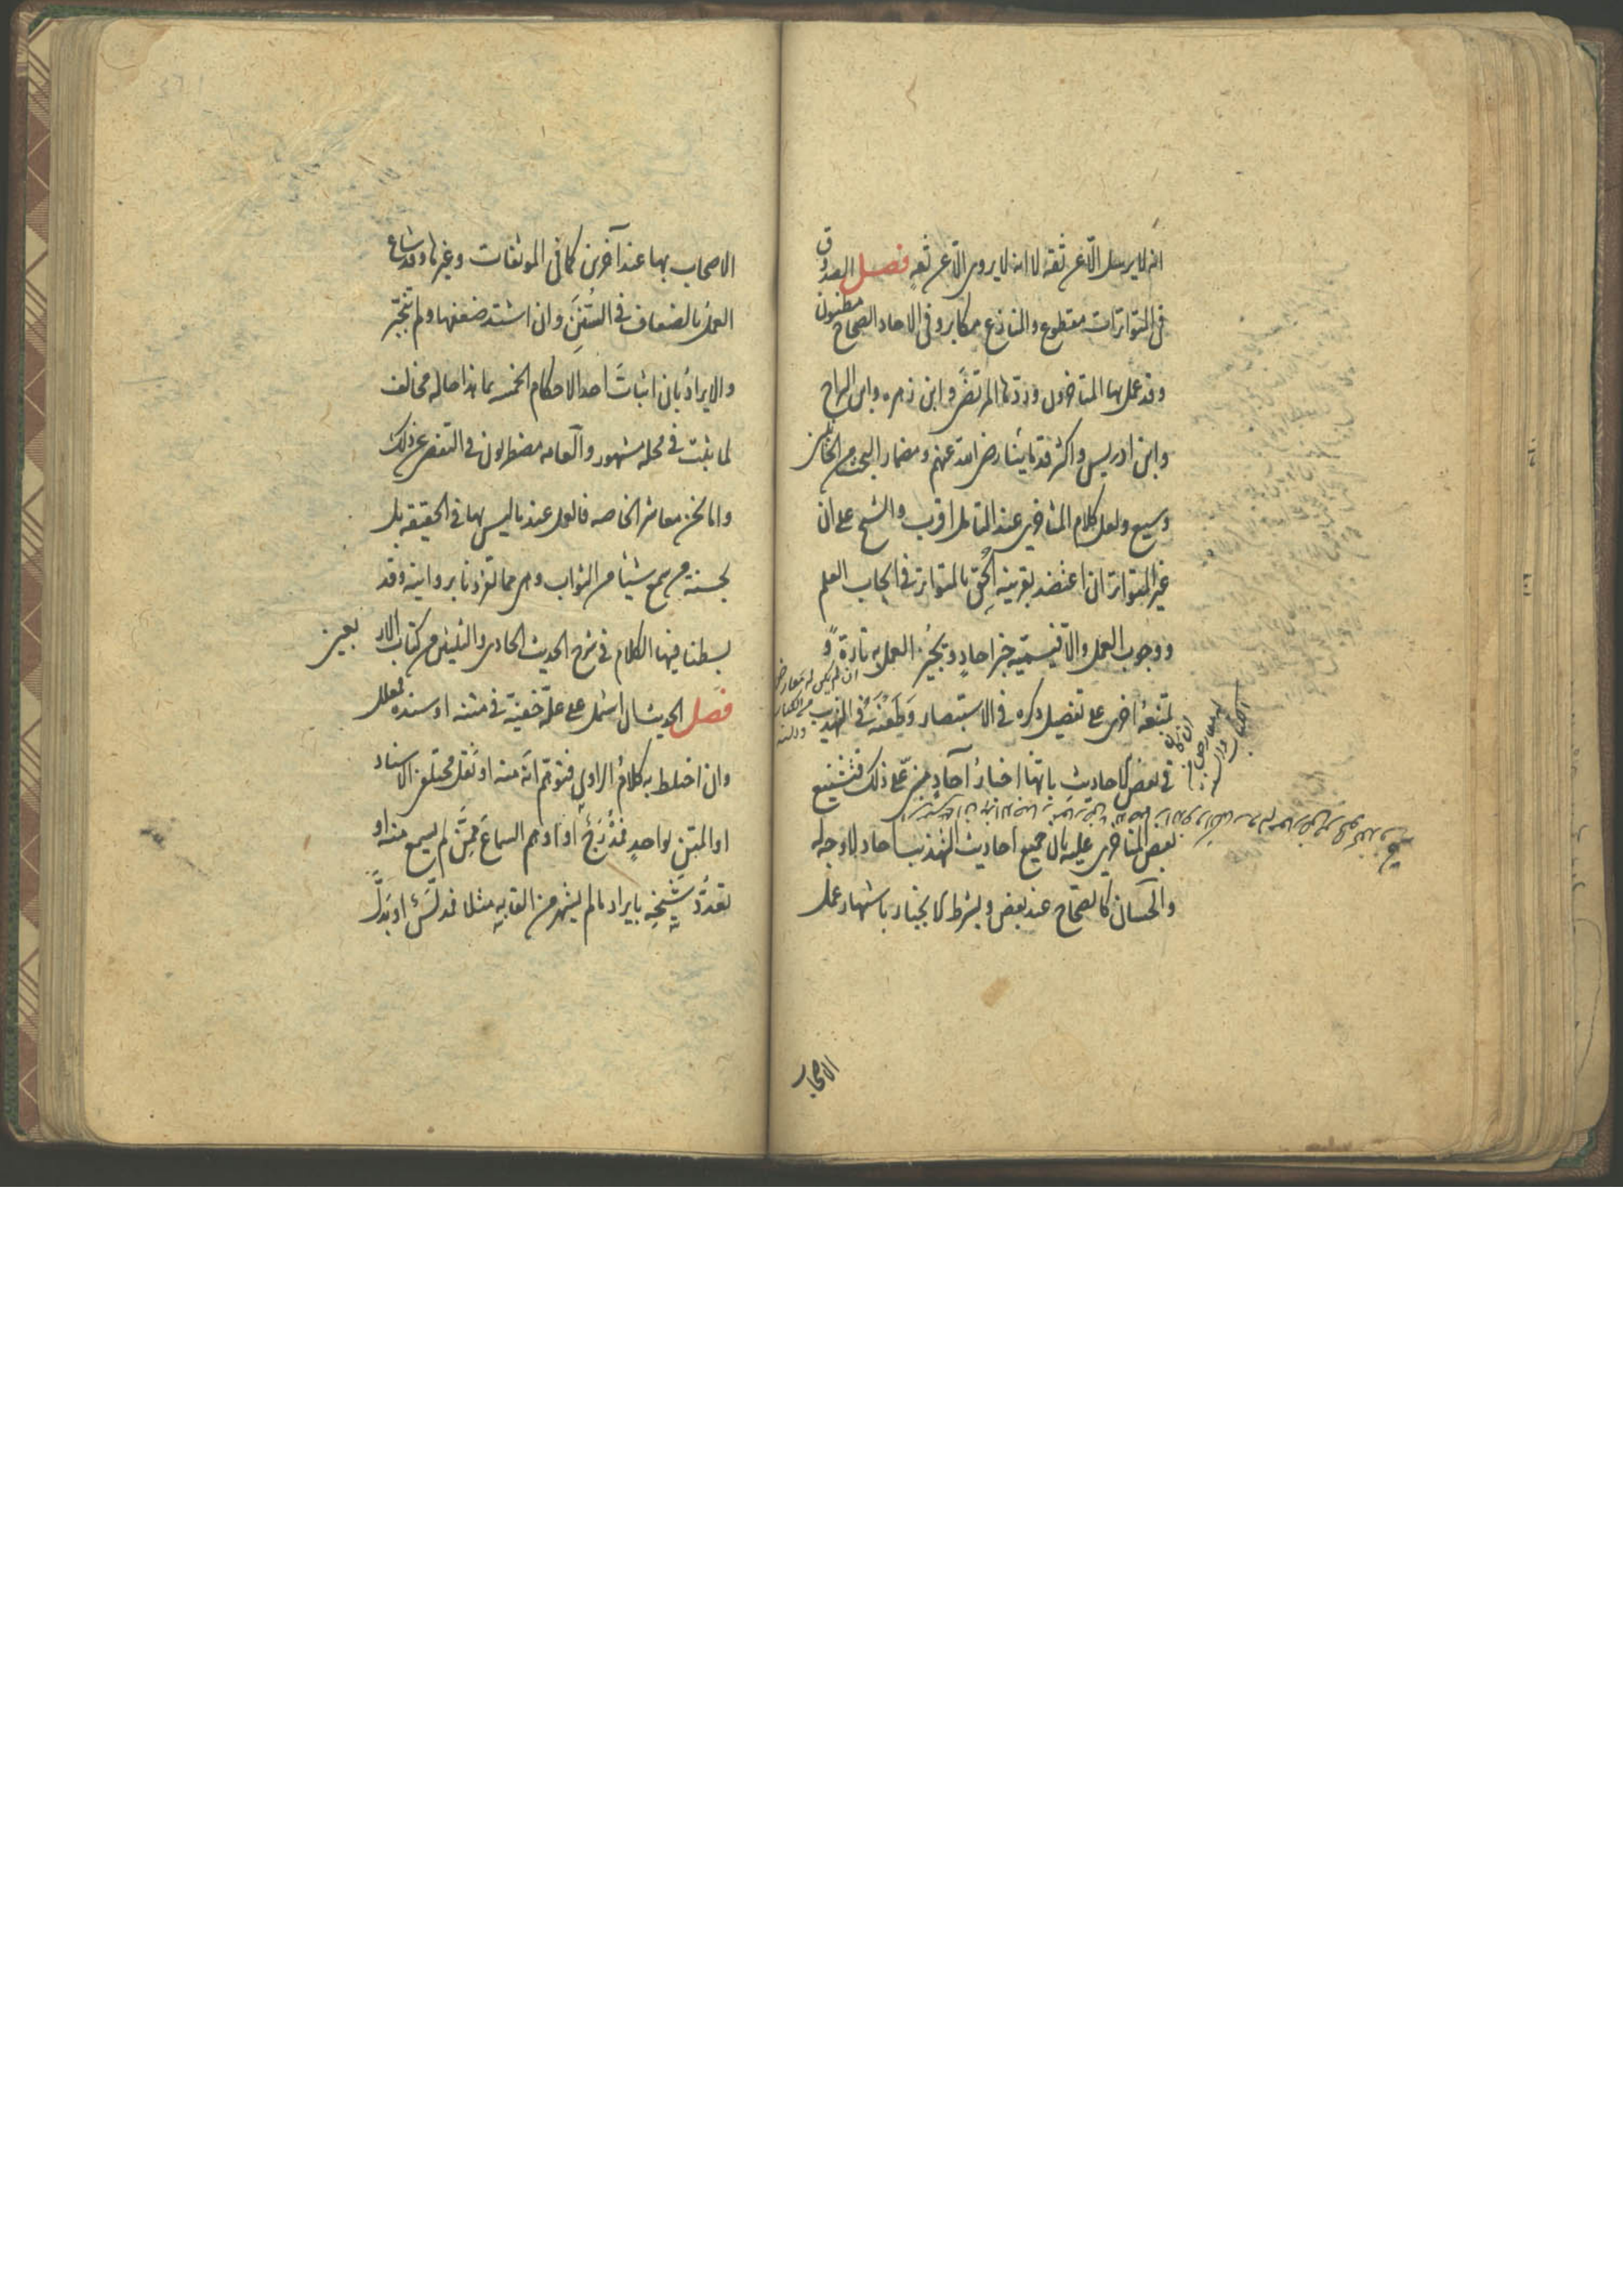 انه لا يرسل الّا عن ثقة لا انه لا يروى الّا عن ثقة فصل الصدق
فى المتواترات مقطوع والمنازع مكابر وفى الاحاد الصحاح مظنون
وقد عمل بها المتاخرون وردّها المرتضى وابن زهره وابن البراج
وابن ادريس واكثر قدمائنا رضى الله عنهم ومضمار البحث من الجانبين
وسيع ولعل كلام المتاخرين عند التامل اقرب والشيخ على ان
غير المتواتر ان اعتضد بقرينة اُلحِق بالمتواتر فى ايجاب العلم
ووجوب العمل والّا فيسمّيه خبر احادٍ ويجيز العمل به تارة و
يمنعه اخرى على تفصيل ذكره فى الاستبصار وطَعنُهُ فى التهذيب
فى بعض الاحاديث بانّها اخبارُ آحادٍ مبنىّ على ذلك فتشنيع
بعض المتاخرين عليه بان جميع احاديث التهذيب احاد لا وجه له
والحسان كالصحاح عند بعض وبشرط الانجبار باشتهار عمل
ان لم يكن له معارض
من الكتاب
ان كان
له معارض
الاصحاب
الاصحاب بها عند آخرين كما فى الموثقات وغيرها وقد شاع
العملُ بالضعاف فى السُّنَنِ وان اشتد ضعفها ولم تنجبر
والايرادُ بان اثباتَ احد الاحكام الخمسه بما هذا حاله مخالف
لما ثبت فى محله مشهور والعامه مضطربون فى التفصى عن ذلك
واما نحن معاشر الخاصه فالعمل عندنا ليس بها فى الحقيقه بل
بحسنة من سمع شيئا من الثواب وهى مما تفردنا بروايته وقد
بسطنا فيها الكلام فى شرح الحديث الحادى والثلثين من كتاب الاربعين
فصل الحديث ان اشتمل على علّة خفيّة فى متنه او سنده فمعلل
وان اختلط به كلامُ الراوى فتوهّم انّه منه او نُقل مختلفى الاسناد
او المتن بواحدٍ فمُدْرَجٌ او اوهم السماعَ ممّن لم يسمع منه او
تعدُّدَ شيخِه بايراد ما لم يشتهر من القابه مثلا فمدلّسٌ او بَدَّلَ